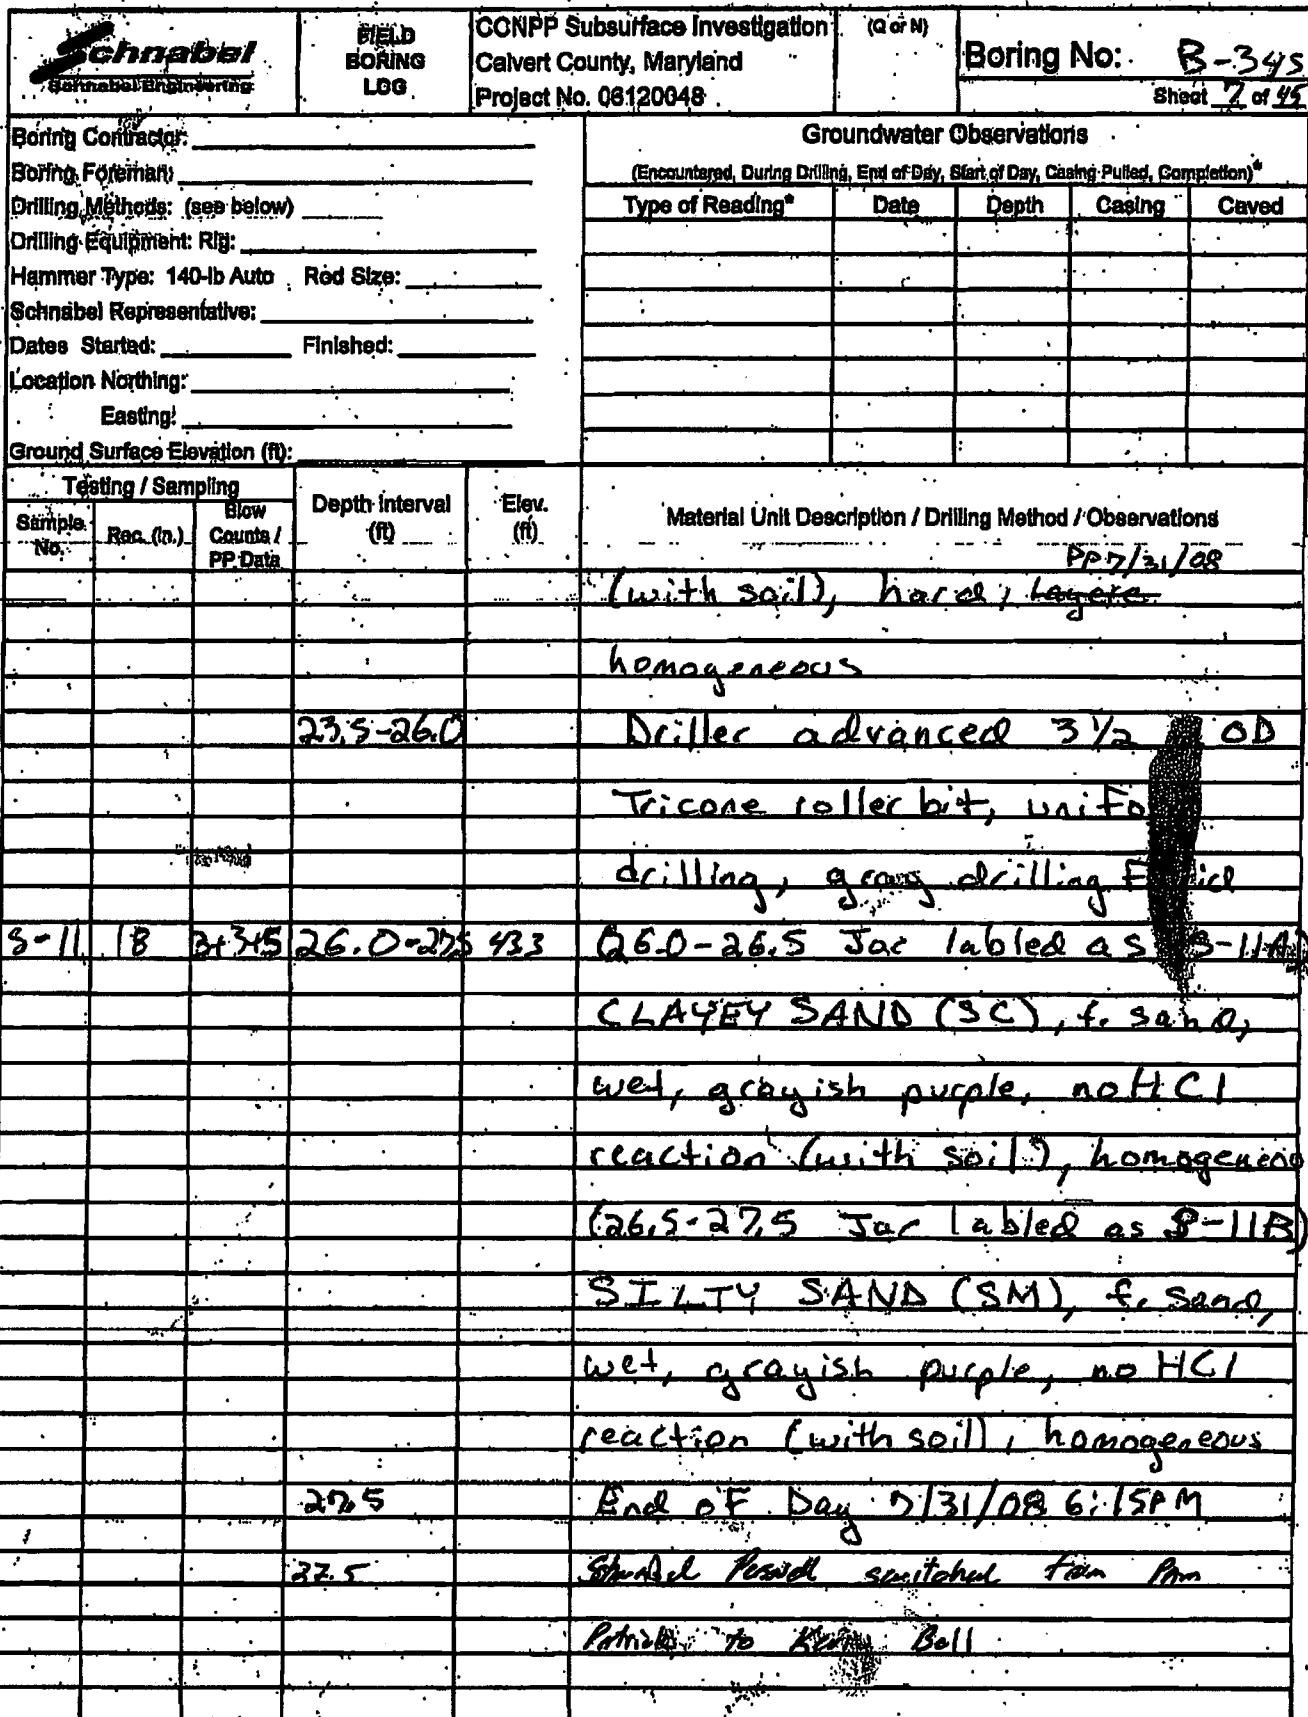 Schnabel
Schnabel Engineering
FIELD
BORING
LOG
CCNPP Subsurface Investigation
Calvert County, Maryland
Project No. 06120048
(Q or N)
Boring No: B-345
Sheet 7 of 45
Boring Contractor:
Boring Foreman:
Drilling Methods: (see below)
Drilling Equipment: Rig:
Hammer Type: 140-lb Auto Rod Size:
Schnabel Representative:
Dates Started: Finished:
Location Northing:
Easting:
Ground Surface Elevation (ft):
Groundwater Observations
(Encountered, During Drilling, End of Day, Start of Day, Casing Pulled, Completion)*
Type of Reading* Date Depth Casing Caved
Testing / Sampling
Sample No. Rec. (in.) Blow Counts / PP Data Depth Interval (ft) Elev. (ft) Material Unit Description / Drilling Method / Observations
PP 7/31/08
(with soil), hard, Layere
homogeneous
23.5-26.0 Driller advanced 3 1/2 OD
Tricone roller bit, unifo
drilling, gray drilling
S-11 18 3+3+5 26.0-27.5 433 (26.0-26.5 Jar labled as S-11A)
CLAYEY SAND (SC), f. sand,
wet, grayish purple, no HCl
reaction (with soil), homogeneo
(26.5-27.5 Jar labled as S-11B)
SILTY SAND (SM), f. sand,
wet, grayish purple, no HCl
reaction (with soil), homogeneous
27.5 End of Day 7/31/08 6:15PM
27.5 switched from Pam
to Ball